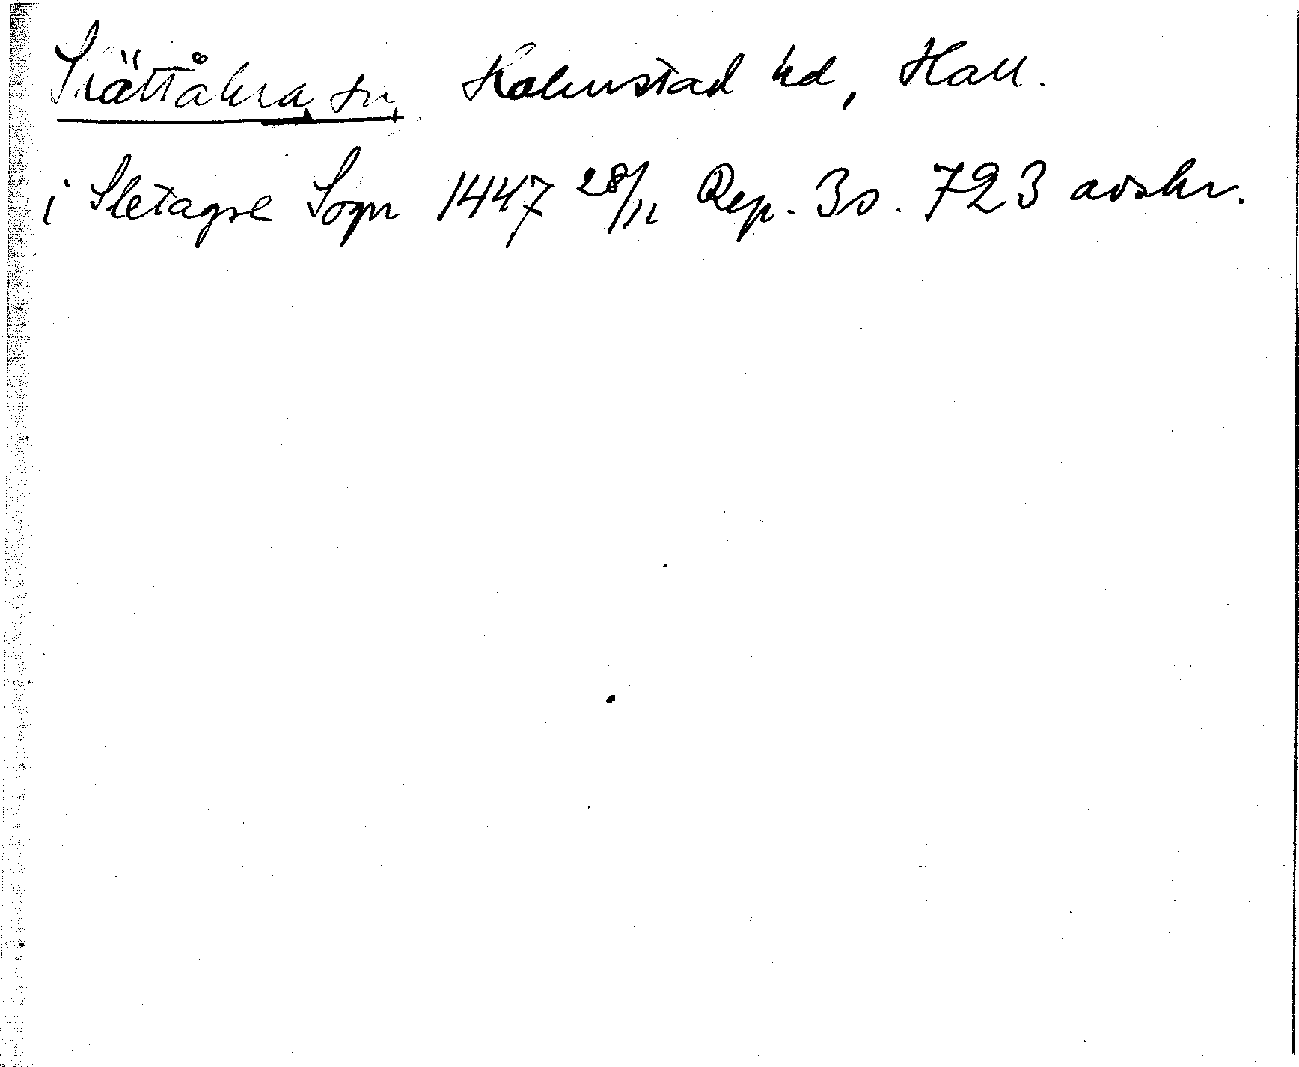 Slättåkra sn, Halmstad hd, Hall.
i Sletagre Sogn 1447 28/11 Rep. 3 s. 723 avskr.